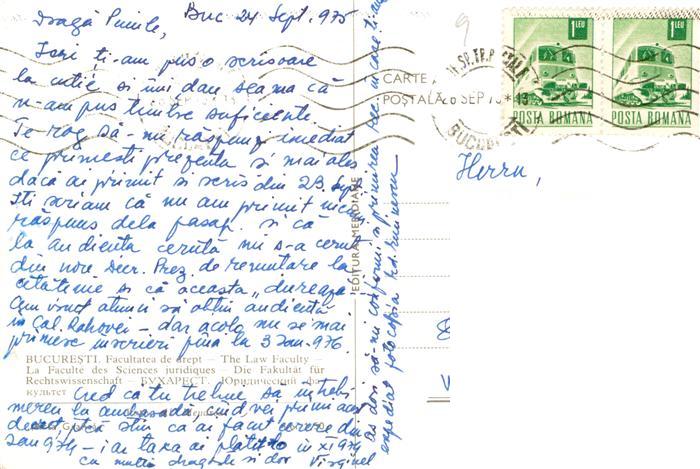 Buc 24 Sept. 975
Dragă Puiule,
Ieri ți-am pus o scrisoare
la cutie și îmi dau seama că
n-am pus timbre suficente.
Te rog să-mi răspunzi imediat
ce primești prezenta și mai ales
dacă ai primit și scris din 23. Sept.
Iți scriam că nu am primit nici un
răspuns dela pasap. și că
la audiența cerută nu s-a cerut
din nou Decr. Prez. de renunțare la
cetățenie și că aceasta „durează
Am vrut atunci să obțin audiență
în Cal. Rahovei – dar acolo nu se mai
primesc inscrieri pînă la 3 Ian. 976.
BUCUREȘTI. Facultatea de drept — The Law Faculty —
La Faculté des Sciences juridiques — Die Fakultät für
Rechtswissenschaft — БУХАРЕСТ. Юридический фа-
культет
Cred că tu trebue să întrebi
mereu la ambasadă cînd vei primi acest
decret, că știu că ai făcut cerere din
Ian 974 – iar taxa ai platit-o în XI 974
cu multă dragoste și dor Virginel
aș dori să-mi confirmi și primirea
expediat fotocopia
EDITURA MERIDIANE
CARTE
POȘTALĂ
SEP 75 * 13
BUCUREȘTI
1 LEU
POSTA ROMANA
1 LEU
POSTA ROMANA
Herrn,